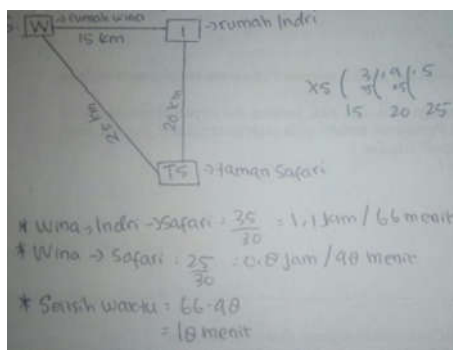 W → rumah wina
15 km
I → rumah Indri
25 km
20 km
TS → taman Safari
x5 ( 3 . 4 . 5
15 20 25
* Wina, Indri → Safari : 35/30 = 1.1 jam / 66 menit
* Wina → Safari : 25/30 : 0.8 jam / 48 menit
* Selisih waktu = 66 - 48
= 18 menit